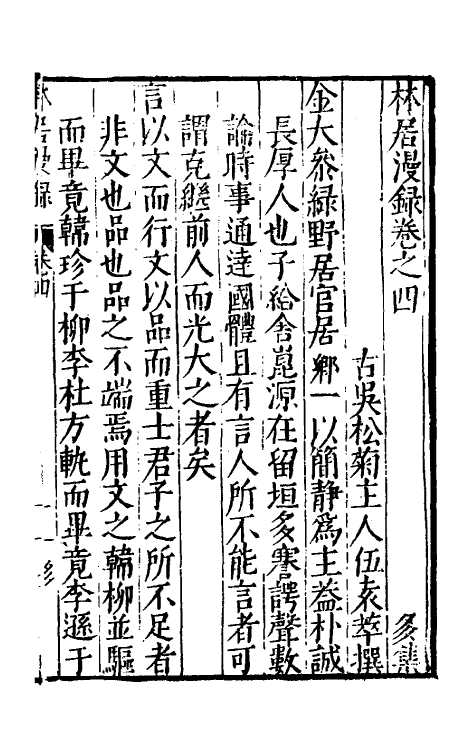 林居漫録卷之四 多集
古吳松菊主人伍袁萃撰
金大叅緑野居官居鄉一以簡静爲主葢朴誠
長厚人也子給舍崑源在留垣多謇諤聲數
論時事通逹國體且有言人所不能言者可
謂克繼前人而光大之者矣
言以文而行文以品而重士君子之所不足者
非文也品也品之不端焉用文之韓柳並驅
而畢竟韓珍于柳李杜方軌而畢竟李遜于
林居漫録 卷四 一 多